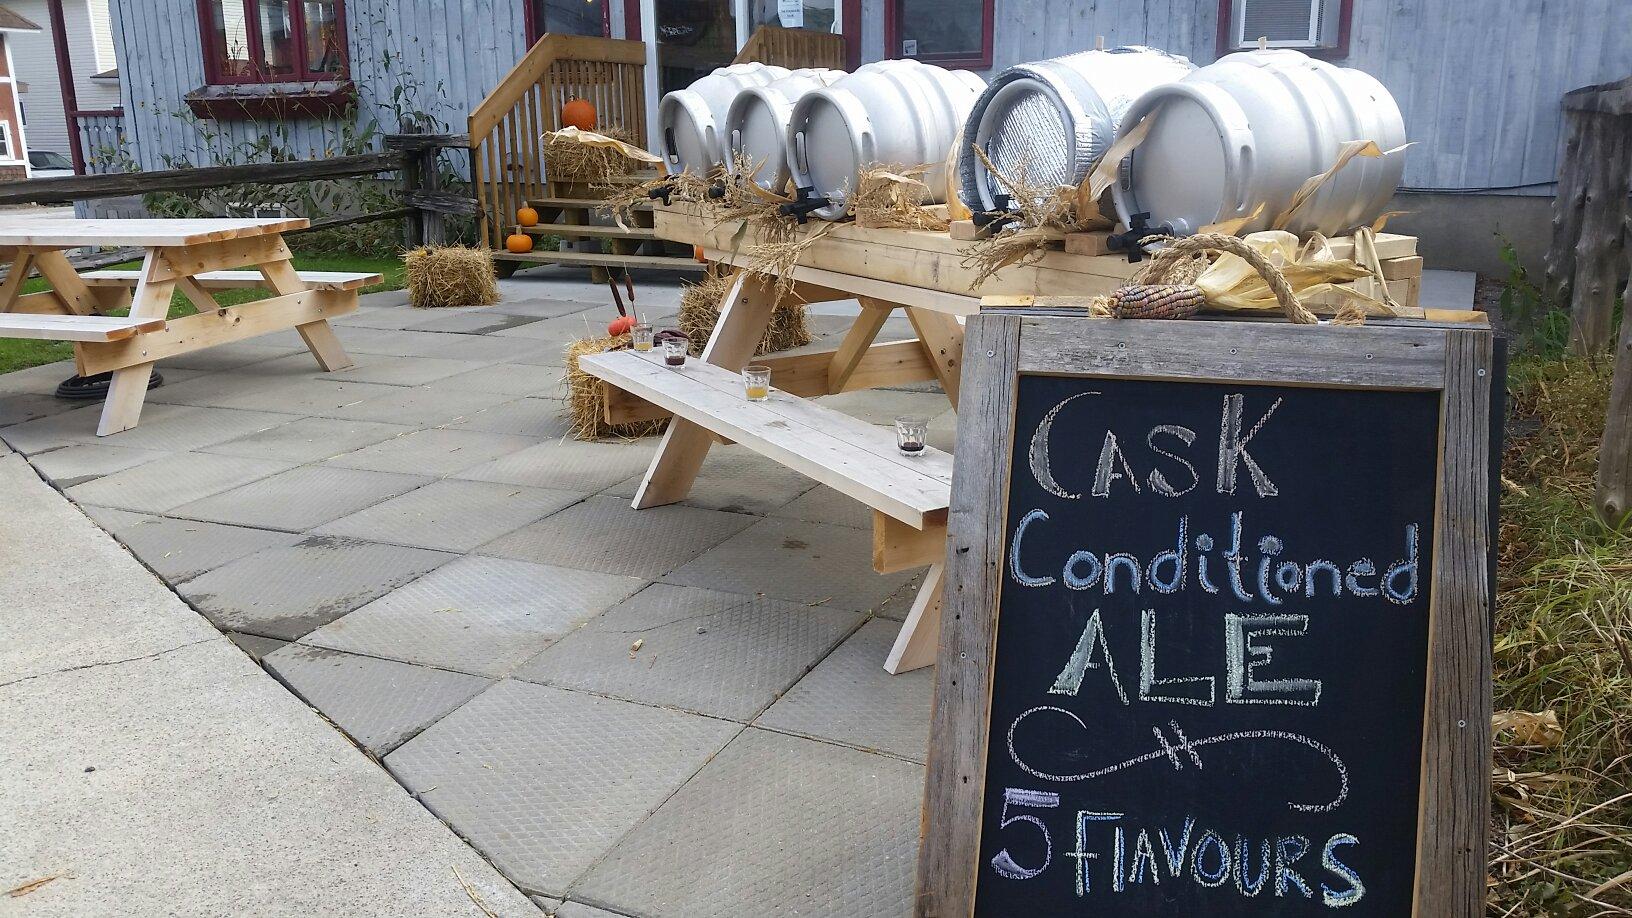 CASK
Conditioned
ALE
5 FLAVOURS